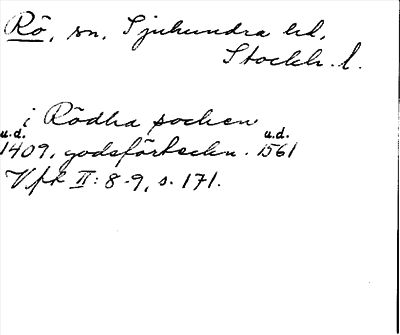 Rö, sn, Sjuhundra hd,
Stockh. l.
i Rödha socken
u.d. u.d.
1409, godsförteckn. 1561
Vfr II: 8-9, s. 171.